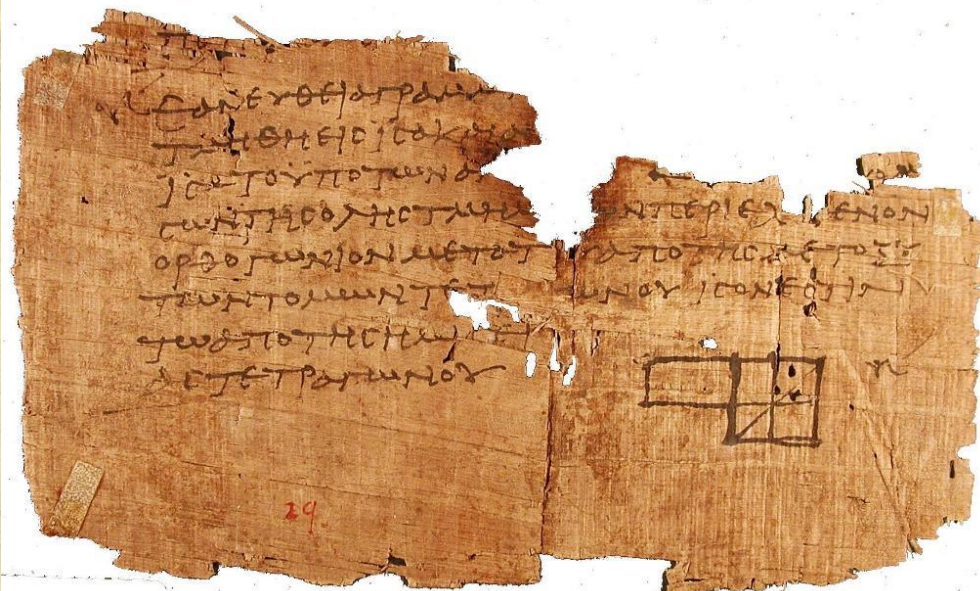 ΕΑΝ ΕΥΘΕΙΑ ΓΡΑΜΜ
ΤΜΗΘΗ ΕΙC ΙCΑ ΚΑΙ Α
ΙCΑ ΤΟ ΥΠΟ ΤΩΝ Α
CΩΝ ΤΗC ΟΛΗC ΤΜΗΜ ΩΝ ΠΕΡΙΕΧ ΜΕΝΟΝ
ΟΡΘΟΓΩΝΙΟΝ ΜΕΤΑ Τ ΑΠΟ ΤΗC ΜΕΤΟΞΥ
ΤΩΝ ΤΟΜΩΝ ΤΕΤ ΩΝΟΥ ΙCΟΝ ΕCΤΙΝ
ΤΩ ΑΠΟ ΤΗC ΗΜΙCΕΙ
ΑC ΤΕΤΡΑΓΩΝΟΥ
29